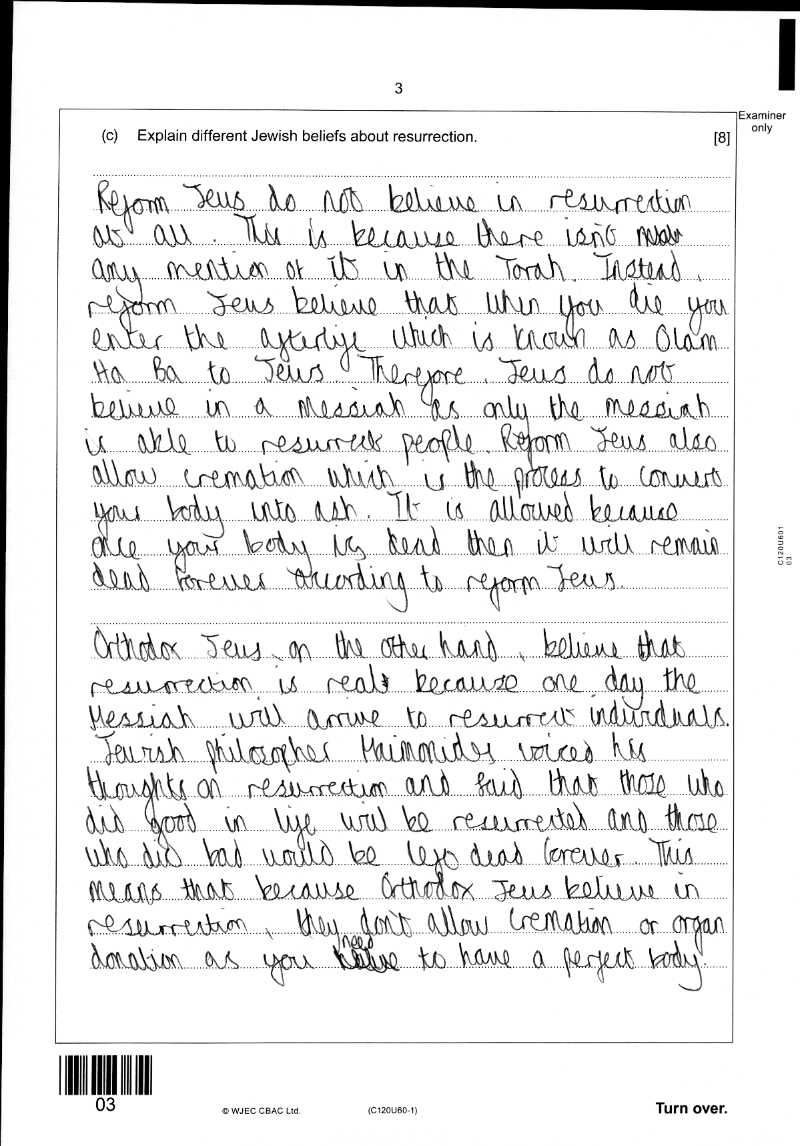 3
Examiner
only
(c) Explain different Jewish beliefs about resurrection. [8]
Reform Jews do not believe in resurrection
at all. This is because there isn't
any mention of it in the Torah. Instead,
reform Jews believe that when you die you
enter the afterlife which is known as Olam
Ha Ba to Jews. Therefore, Jews do not
believe in a Messiah as only the messiah
is able to resurrect people. Reform Jews also
allow cremation which is the process to convert
your body into ash. It is allowed because
once your body is dead then it will remain
dead forever according to reform Jews.
Orthodox Jews, on the other hand, believe that
resurrection is real because one day the
Messiah will arrive to resurrect individuals.
Jewish philosopher Maimonides voiced his
thoughts on resurrection and said that those who
did good in life will be resurrected and those
who did bad would be left dead forever. This
means that because Orthodox Jews believe in
resurrection, they don't allow cremation or organ
donation as you need to have a perfect body.
C120U601
03
03
© WJEC CBAC Ltd.
(C120U60-1)
Turn over.